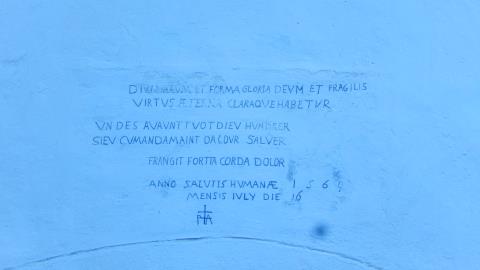 DIVITIARUM ET FORMA GLORIA DEVM ET FRAGILIS
VIRTVS ÆTERNA CLARAQVE HABETVR
VN DES AVAVNT TVOT DIEV HUNDRER
SIEV CUMANDAMAINT DA COUR SALVER
FRANGIT FORTIA CORDA DOLOR
ANNO SALVTIS HVMANÆ 1 5 6
MENSIS IVLY DIE 16